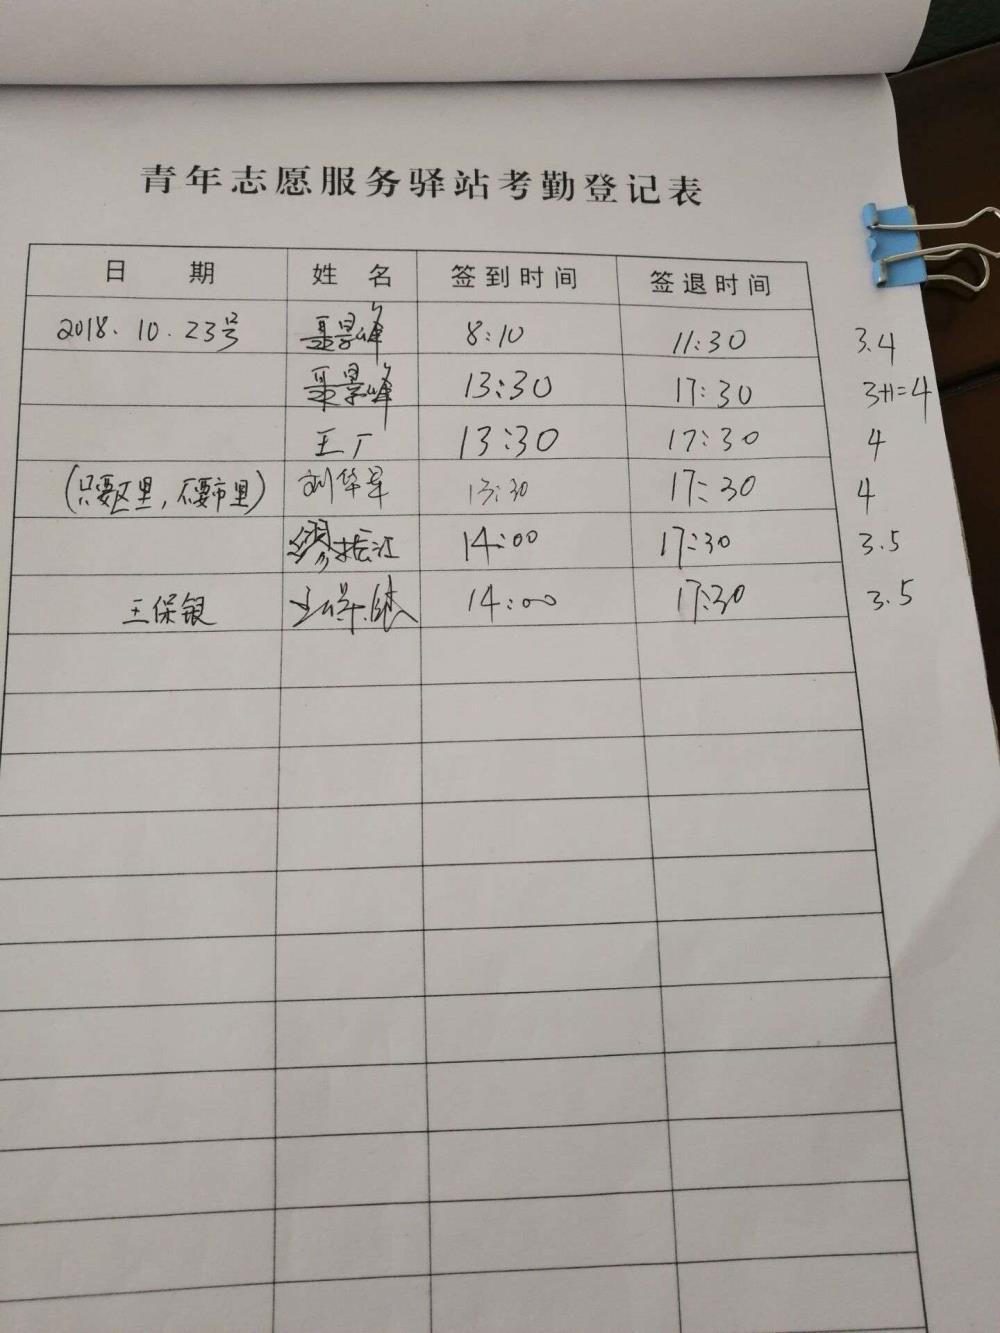 青年志愿服务驿站考勤登记表
日 期 姓 名 签到时间 签退时间
2018.10.23号 聂景峰 8:10 11:30 3.4
聂景峰 13:30 17:30 3+1=4
王厂 13:30 17:30 4
(只要区里,不要市里) 刘华星 13:30 17:30 4
缪振江 14:00 17:30 3.5
王保银 王保银 14:00 17:30 3.5